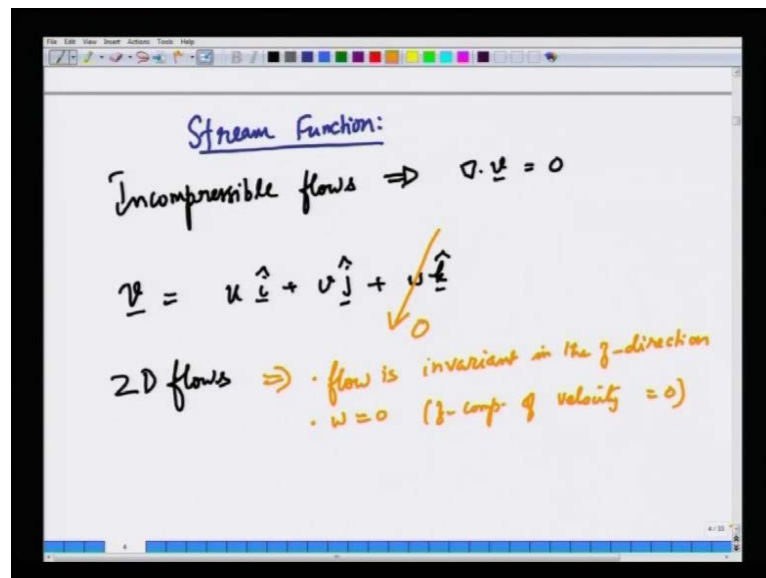 File Edit View Insert Actions Tools Help
Stream Function:
Incompressible flows ⇒ ∇·v = 0
v = u î + v ĵ + w k̂
0
2D flows ⇒ · flow is invariant in the z-direction
· w=0 (z-comp. of velocity = 0)